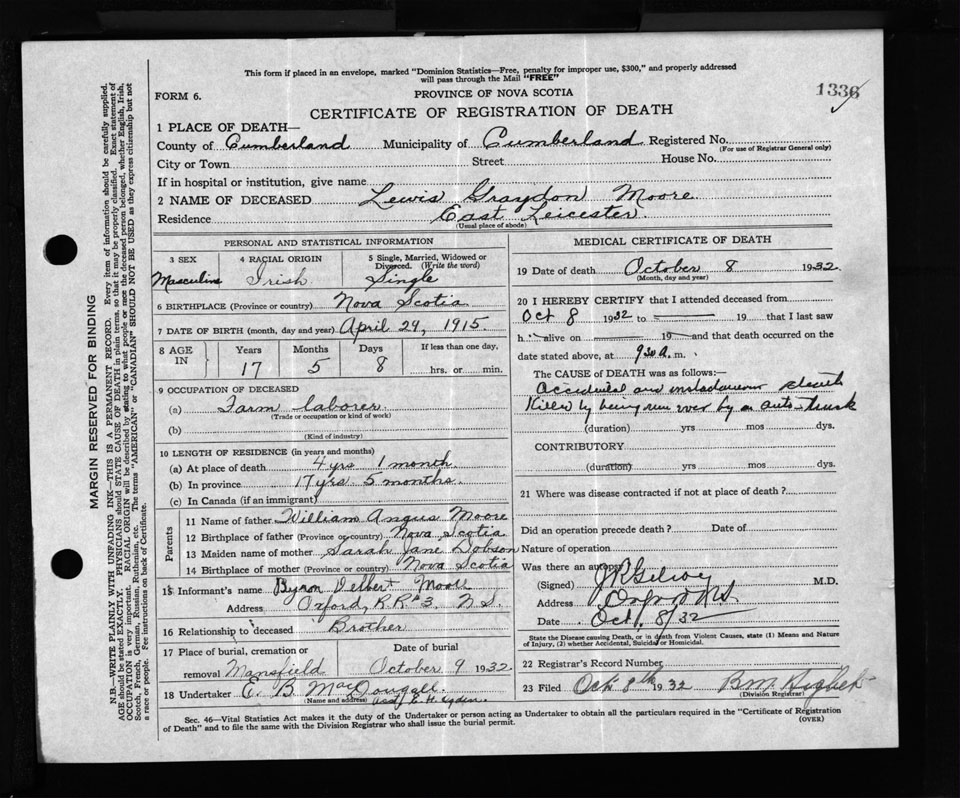 This form if placed in an envelope, marked "Dominion Statistics—Free, penalty for improper use, $300," and properly addressed
will pass through the Mail "FREE"
FORM 6.
PROVINCE OF NOVA SCOTIA
1336
CERTIFICATE OF REGISTRATION OF DEATH
1 PLACE OF DEATH—
County of Cumberland Municipality of Cumberland Registered No.
(For use of Registrar General only)
City or Town Street House No.
If in hospital or institution, give name
2 NAME OF DECEASED Lewis Graydon Moore
Residence East Leicester
(Usual place of abode)
PERSONAL AND STATISTICAL INFORMATION
3 SEX 4 RACIAL ORIGIN 5 Single, Married, Widowed or Divorced. (Write the word)
Masculine Irish Single
6 BIRTHPLACE (Province or country) Nova Scotia
7 DATE OF BIRTH (month, day and year) April 29, 1915.
8 AGE IN Years Months Days If less than one day,
17 5 8 hrs. or min.
9 OCCUPATION OF DECEASED
(a) Farm laborer
(Trade or occupation or kind of work)
(b)
(Kind of industry)
10 LENGTH OF RESIDENCE (in years and months)
(a) At place of death 4 yrs 1 month
(b) In province 17 yrs 5 months.
(c) In Canada (if an immigrant)
Parents
11 Name of father William Angus Moore
12 Birthplace of father (Province or country) Nova Scotia
13 Maiden name of mother Sarah Jane Dobson
14 Birthplace of mother (Province or country) Nova Scotia
15 Informant's name Byron Delbert Moore
Address Oxford, R.R.#3. N.S.
16 Relationship to deceased Brother
17 Place of burial, cremation or removal Date of burial
Mansfield October 9 1932
18 Undertaker E. B. MacDougall
(Name and address)
MEDICAL CERTIFICATE OF DEATH
19 Date of death October 8 1932
(Month, day and year)
20 I HEREBY CERTIFY that I attended deceased from
Oct 8 1932 to 19 that I last saw
h alive on 19 and that death occurred on the
date stated above, at 9 30 a. m.
The CAUSE OF DEATH was as follows:—
Accidental and instantaneous death
Killed by being run over by an auto-truck
(duration) yrs mos dys.
CONTRIBUTORY
(duration) yrs mos dys.
21 Where was disease contracted if not at place of death?
Did an operation precede death? Date of
Nature of operation
Was there an autopsy
(Signed) M.D.
Address Oxford N.S.
Date Oct. 8/32
State the Disease causing Death, or in death from Violent Causes, state (1) Means and Nature
of Injury, (2) whether Accidental, Suicidal or Homicidal.
22 Registrar's Record Number
23 Filed Oct 8th 1932
Division Registrar
Sec. 46—Vital Statistics Act makes it the duty of the Undertaker or person acting as Undertaker to obtain all the particulars required in the "Certificate of Registration
of Death" and to file the same with the Division Registrar who shall issue the burial permit.
(OVER)
MARGIN RESERVED FOR BINDING
N.B.—WRITE PLAINLY WITH UNFADING INK—THIS IS A PERMANENT RECORD. Every item of information should be carefully supplied.
AGE should be stated EXACTLY. PHYSICIANS should STATE CAUSE OF DEATH in plain terms, so that it may be properly classified. Exact statement of
OCCUPATION is very important. RACIAL ORIGIN will be described by stating to what people or race the deceased person belonged, whether English, Irish,
Scotch, French, German, Russian, Ruthenian, etc. The terms "AMERICAN" or "CANADIAN" SHOULD NOT BE USED as they express citizenship but not
a race or people. Fee instructions on back of Certificate.